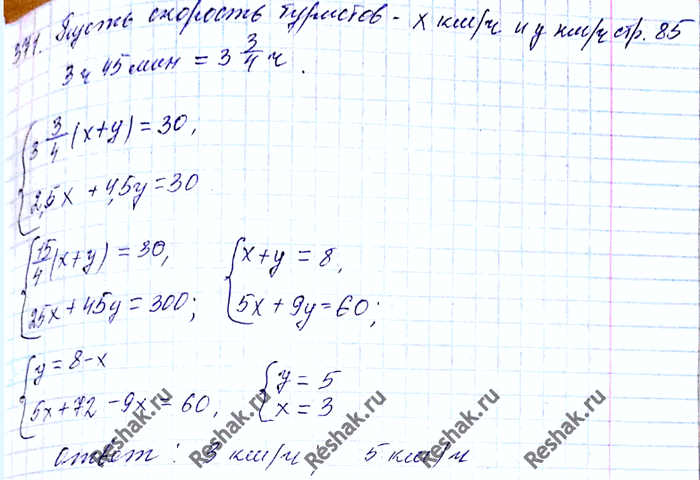 371. Пусть скорость туристов - x км/ч и y км/ч стр. 85
3 ч 45 мин = 3 3/4 ч.
{ 3 3/4 (x+y) = 30,
2,5x + 4,5y = 30
{ 15/4 (x+y) = 30, { x+y = 8,
25x + 45y = 300; 5x + 9y = 60;
{ y = 8-x { y = 5
5x + 72 - 9x = 60, x = 3
Ответ: 3 км/ч; 5 км/ч
Reshak.ru Reshak.ru Reshak.ru Reshak.ru Reshak.ru